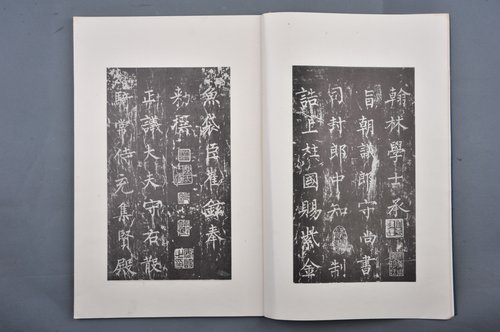 翰林學士承
旨朝議郎守尚書
司封郎中知制
誥上柱國賜紫金
魚袋臣崔鉉奉
勑撰
正議大夫守右散
騎常侍充集賢殿